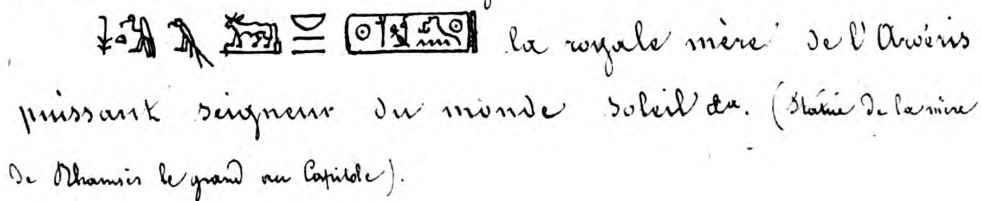 la royale mère de l'Aroëris
puissant seigneur du monde soleil &a. (Statue de la mère
de Rhamsès le grand au Capitole).